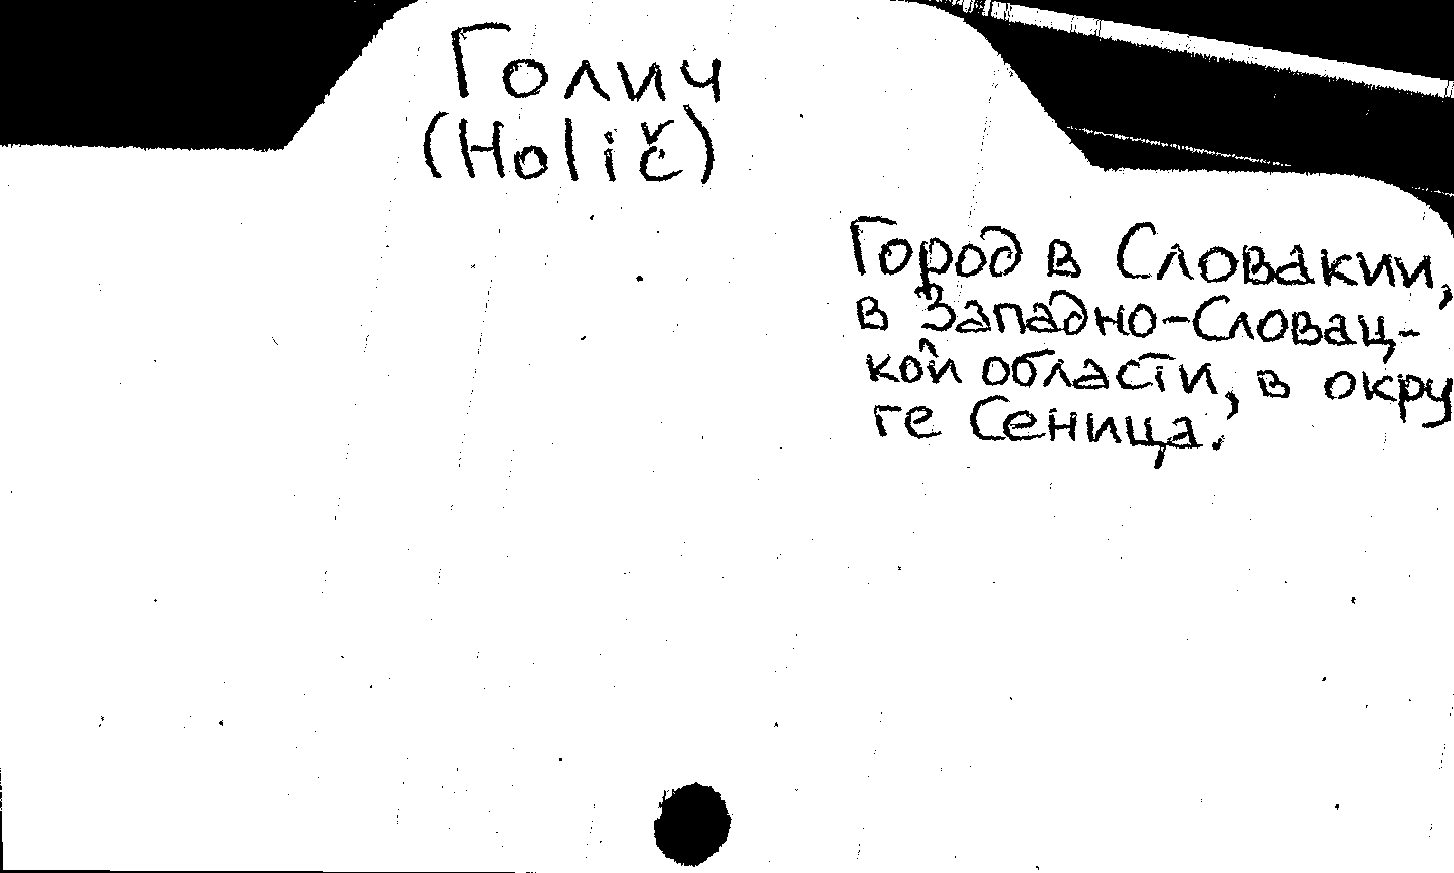 Голич
(Holič)
Город в Словакии,
в Западно-Словац-
кой области, в окру
ге Сеница.